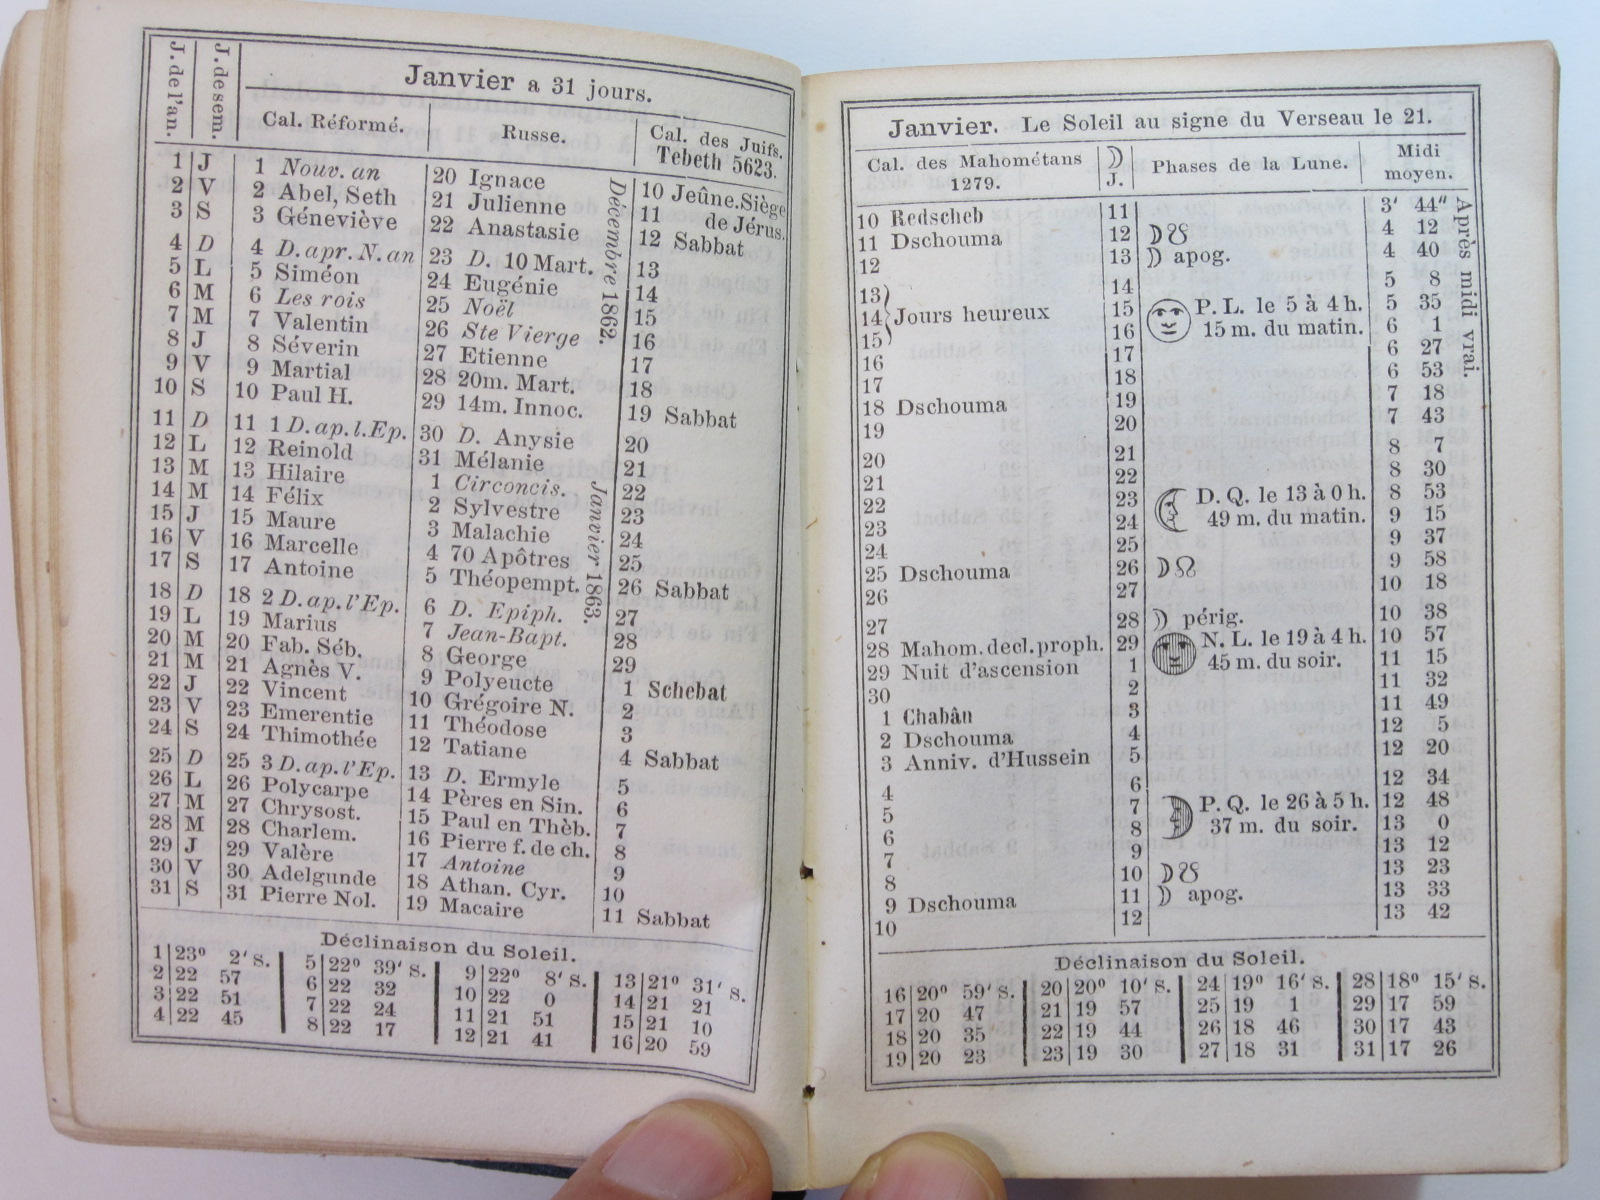 Janvier a 31 jours.
J. de l'an. J. de sem. Cal. Réformé. Russe. Cal. des Juifs. Tebeth 5623.
1 J 1 Nouv. an 20 Ignace 10 Jeûne. Siège
2 V 2 Abel, Seth 21 Julienne 11 de Jérus.
3 S 3 Géneviève 22 Anastasie 12 Sabbat
4 D 4 D. apr. N. an 23 D. 10 Mart. 13
5 L 5 Siméon 24 Eugénie 14
6 M 6 Les rois 25 Noël 15
7 M 7 Valentin 26 Ste Vierge 16
8 J 8 Séverin 27 Etienne 17
9 V 9 Martial 28 20m. Mart. 18
10 S 10 Paul H. 29 14m. Innoc. 19 Sabbat
11 D 11 1 D. ap. l. Ep. 30 D. Anysie 20
12 L 12 Reinold 31 Mélanie 21
13 M 13 Hilaire 1 Circoncis. 22
14 M 14 Félix 2 Sylvestre 23
15 J 15 Maure 3 Malachie 24
16 V 16 Marcelle 4 70 Apôtres 25
17 S 17 Antoine 5 Théopempt. 26 Sabbat
18 D 18 2 D. ap. l'Ep. 6 D. Epiph. 27
19 L 19 Marius 7 Jean-Bapt. 28
20 M 20 Fab. Séb. 8 George 29
21 M 21 Agnès V. 9 Polyeucte 1 Schebat
22 J 22 Vincent 10 Grégoire N. 2
23 V 23 Emerentie 11 Théodose 3
24 S 24 Thimothée 12 Tatiane 4 Sabbat
25 D 25 3 D. ap. l'Ep. 13 D. Ermyle 5
26 L 26 Polycarpe 14 Pères en Sin. 6
27 M 27 Chrysost. 15 Paul en Thèb. 7
28 M 28 Charlem. 16 Pierre f. de ch. 8
29 J 29 Valère 17 Antoine 9
30 V 30 Adelgunde 18 Athan. Cyr. 10
31 S 31 Pierre Nol. 19 Macaire 11 Sabbat
Décembre 1862.
Janvier 1863.
Déclinaison du Soleil.
1 23° 2' S. 5 22° 39' S. 9 22° 8' S. 13 21° 31' S.
2 22 57 6 22 32 10 22 0 14 21 21
3 22 51 7 22 24 11 21 51 15 21 10
4 22 45 8 22 17 12 21 41 16 20 59
Janvier. Le Soleil au signe du Verseau le 21.
Cal. des Mahométans 1279. ☽ J. Phases de la Lune. Midi moyen.
10 Redscheb 11 3' 44"
11 Dschouma 12 ☽☋ 4 12
12 13 ☽ apog. 4 40
13 14 5 8
14 Jours heureux 15 P. L. le 5 à 4 h. 5 35
15 16 15 m. du matin. 6 1
16 17 6 27
17 18 6 53
18 Dschouma 19 7 18
19 20 7 43
20 21 8 7
21 22 8 30
22 23 D. Q. le 13 à 0 h. 8 53
23 24 49 m. du matin. 9 15
24 25 9 37
25 Dschouma 26 ☽☊ 9 58
26 27 10 18
27 28 ☽ périg. 10 38
28 Mahom. decl. proph. 29 N. L. le 19 à 4 h. 10 57
29 Nuit d'ascension 1 45 m. du soir. 11 15
30 2 11 32
1 Chabân 3 11 49
2 Dschouma 4 12 5
3 Anniv. d'Hussein 5 12 20
4 6 12 34
5 7 P. Q. le 26 à 5 h. 12 48
6 8 37 m. du soir. 13 0
7 9 13 12
8 10 ☽☋ 13 23
9 Dschouma 11 ☽ apog. 13 33
10 12 13 42
Après midi vrai.
Déclinaison du Soleil.
16 20° 59' S. 20 20° 10' S. 24 19° 16' S. 28 18° 15' S.
17 20 47 21 19 57 25 19 1 29 17 59
18 20 35 22 19 44 26 18 46 30 17 43
19 20 23 23 19 30 27 18 31 31 17 26